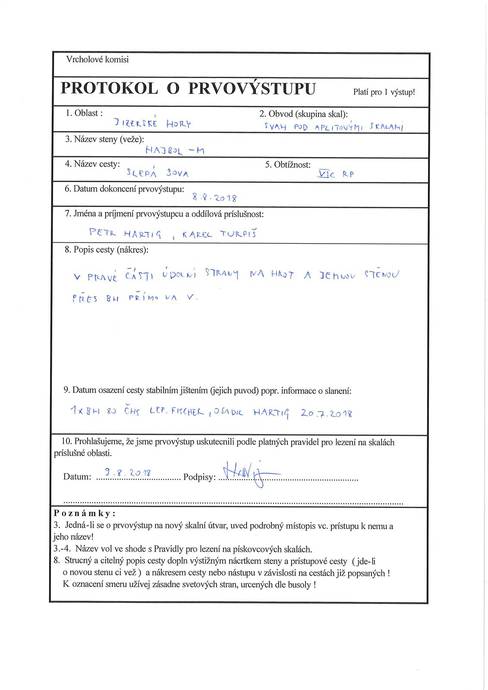 Vrcholové komisi
PROTOKOL O PRVOVÝSTUPU Platí pro 1 výstup!
1. Oblast : 2. Obvod (skupina skal):
JIZERSKÉ HORY SVAH POD APLITOVÝMI SKALAMI
3. Název steny (veže):
HAJBOL - M
4. Název cesty: 5. Obtížnost:
SLEPÁ SOVA VIc RP
6. Datum dokoncení prvovýstupu:
8.8.2018
7. Jména a príjmení prvovýstupcu a oddílová príslušnost:
PETR HARTIG, KAREL TURPIŠ
8. Popis cesty (nákres):
V PRAVÉ ČÁSTI ÚDOLNÍ STRANY NA HROT A JEMNOU STĚNOU
PŘES BH PŘÍMO NA V.
9. Datum osazení cesty stabilním jištením (jejich puvod) popr. informace o slanení:
1x BH 80 ČHS LEP. FISCHER, OSADIL HARTIG 20.7.2018
10. Prohlašujeme, že jsme prvovýstup uskutecnili podle platných pravidel pro lezení na skalách
príslušné oblasti.
Datum: 9.8.2018 Podpisy:
Poznámky:
3. Jedná-li se o prvovýstup na nový skalní útvar, uved podrobný místopis vc. prístupu k nemu a
jeho název!
3.-4. Název vol ve shode s Pravidly pro lezení na pískovcových skalách.
8. Strucný a citelný popis cesty dopln výstižným nácrtkem steny a prístupové cesty ( jde-li
o novou stenu ci vež ) a nákresem cesty nebo nástupu v závislosti na cestách již popsaných !
K oznacení smeru užívej zásadne svetových stran, urcených dle busoly !